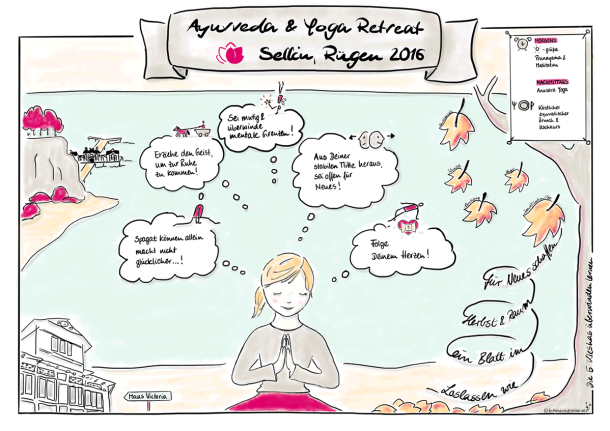 Ayurveda & Yoga Retreat
Sellin, Rügen 2016
MORGENS:
Pranayama &
Meditation
NACHMITTAGS:
Anusara Yoga
Köstlicher
ayurvedischer
Brunch &
Kochkurs
Sei mutig &
überwinde
mentale Grenzen!
Erziehe den Geist,
um zur Ruhe
zu kommen!
Aus Deiner
stabilen Mitte heraus,
sei offen für
Neues!
Spagat können allein
macht nicht
glücklicher...!
Folge
Deinem Herzen!
für Neues schaffen
Herbst & Raum
ein Blatt im
Loslassen wie
Die 5 Kleshas überwinden lernen
Haus Victoria